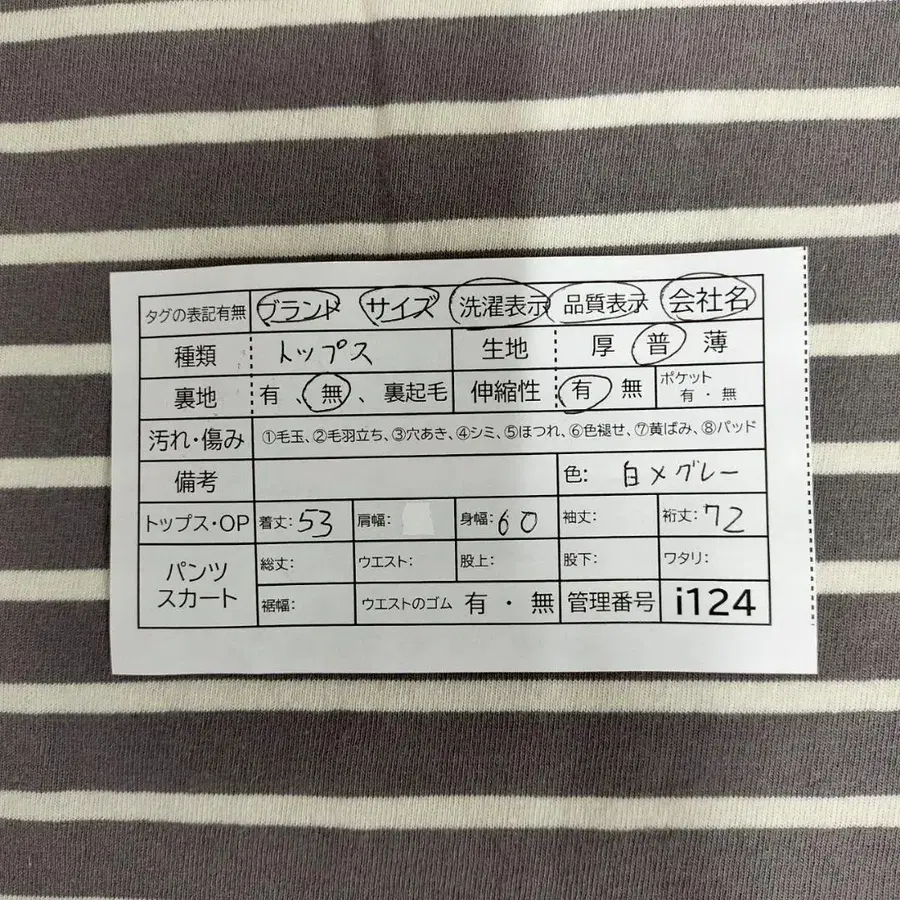 タグの表記有無 ブランド サイズ 洗濯表示 品質表示 会社名
種類 トップス 生地 厚 普 薄
裏地 有 、 無 、 裏起毛 伸縮性 有 無 ポケット 有 ・ 無
汚れ・傷み ①毛玉、②毛羽立ち、③穴あき、④シミ、⑤ほつれ、⑥色褪せ、⑦黄ばみ、⑧パッド
備考 色: 白×グレー
トップス・OP 着丈: 53 肩幅: 身幅: 60 袖丈: 裄丈: 72
パンツ スカート 総丈: ウエスト: 股上: 股下: ワタリ:
裾幅: ウエストのゴム 有 ・ 無 管理番号 i124